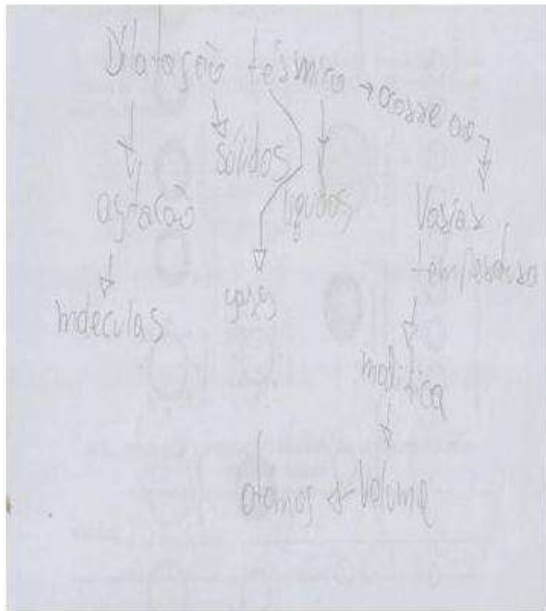 Dilatação térmica → ocorre ao
sólidos
agitação líquidos Variar
temperatura
moléculas gases
modifica
átomos → Volume